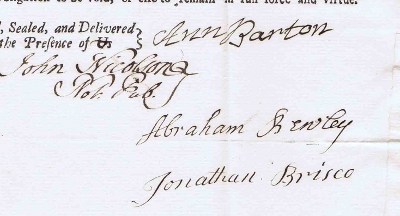 to be void, or else to remain in full force and virtue.
, Sealed, and Delivered
the Presence of Us
Ann Barton
John Nicolson
Not. Pub.
Abraham Hewley
Jonathan Brisco